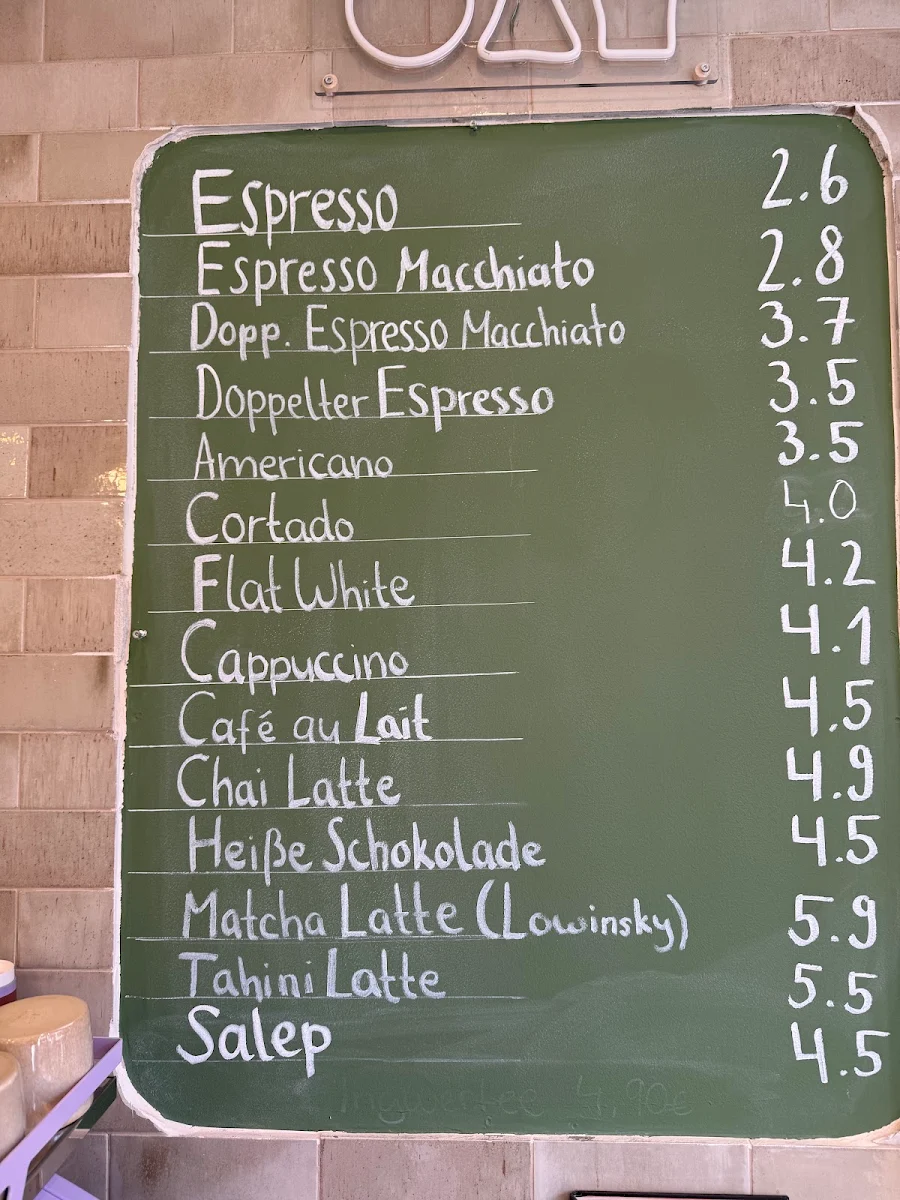 Espresso 2.6
Espresso Macchiato 2.8
Dopp. Espresso Macchiato 3.7
Doppelter Espresso 3.5
Americano 3.5
Cortado 4.0
Flat White 4.2
Cappuccino 4.1
Café au Lait 4.5
Chai Latte 4.9
Heiße Schokolade 4.5
Matcha Latte (Lowinsky) 5.9
Tahini Latte 5.5
Salep 4.5
Ingwertee 4,90€